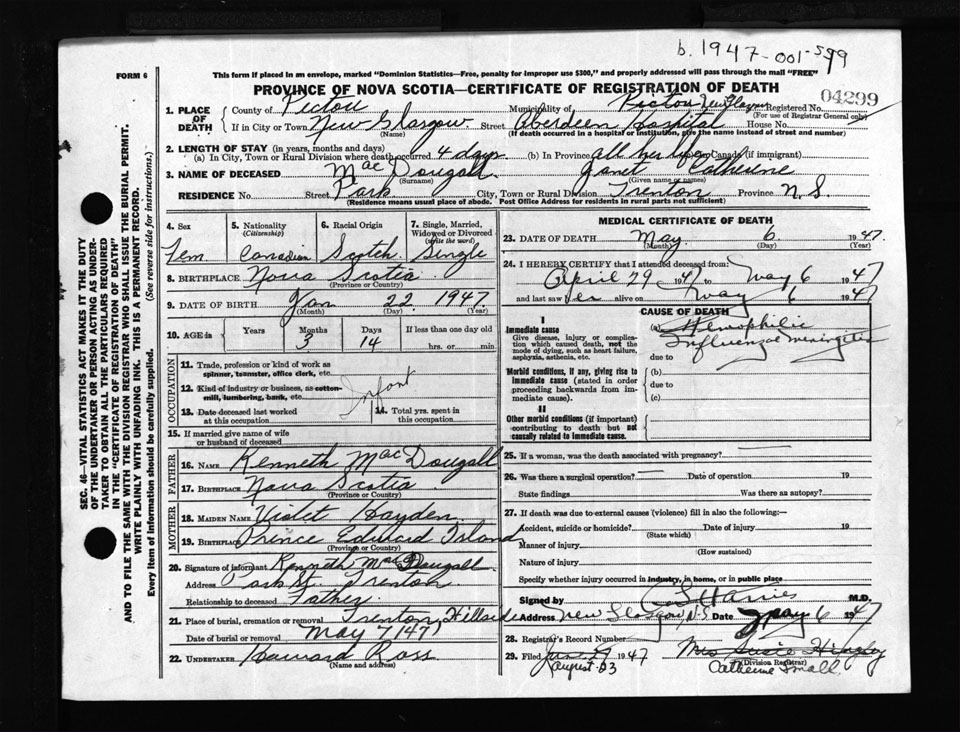 b. 1947-001-599
FORM 6
This form if placed in an envelope, marked "Dominion Statistics—Free, penalty for improper use $300," and properly addressed will pass through the mail "FREE"
PROVINCE OF NOVA SCOTIA—CERTIFICATE OF REGISTRATION OF DEATH
04299
1. PLACE OF DEATH County of Pictou Municipality of Pictou New Glasgow Registered No.
(For use of Registrar General only)
If in City or Town New Glasgow Street Aberdeen Hospital House No.
(Name) (If death occurred in hospital or institution, give the name instead of street and number)
2. LENGTH OF STAY (in years, months and days)
(a) In City, Town or Rural Division where death occurred 4 days (b) In Province all her life Canada (if immigrant)
3. NAME OF DECEASED MacDougall Janet Catherine
(Surname) (Given name or names)
RESIDENCE No. Street Park City, Town or Rural Division Trenton Province N.S
(Residence means usual place of abode. Post Office Address for residents in rural parts not sufficient)
4. Sex 5. Nationality (Citizenship) 6. Racial Origin 7. Single, Married, Widowed or Divorced (write the word)
Fem Canadian Scotch Single
8. BIRTHPLACE Nova Scotia
(Province or Country)
9. DATE OF BIRTH Jan 22 1947
(Month) (Day) (Year)
10. AGE in Years Months Days If less than one day old
3 14 hrs. or min.
OCCUPATION
11. Trade, profession or kind of work as spinner, teamster, office clerk, etc.
12. Kind of industry or business, as cotton-mill, lumbering, bank, etc.
Infant
13. Date deceased last worked at this occupation 14. Total yrs. spent in this occupation
15. If married give name of wife or husband of deceased
FATHER
16. NAME Kenneth MacDougall
17. BIRTHPLACE Nova Scotia
(Province or Country)
MOTHER
18. MAIDEN NAME Violet Hayden
19. BIRTHPLACE Prince Edward Island
(Province or Country)
20. Signature of informant Kenneth MacDougall
Address Park St. Trenton
Relationship to deceased Father
21. Place of burial, cremation or removal Trenton, Hillside
Date of burial or removal May 7/47
22. UNDERTAKER Howard Ross
(Name and address)
MEDICAL CERTIFICATE OF DEATH
23. DATE OF DEATH May 6 1947
(Month) (Day) (Year)
24. I HEREBY CERTIFY that I attended deceased from:
April 29 1947 to May 6 1947
and last saw her alive on May 6 1947
CAUSE OF DEATH
I
Immediate cause
Give disease, injury or complication which caused death, not the mode of dying, such as heart failure, asphyxia, asthenia, etc.
(a) Hemophilic
Influenzal meningitis
due to
Morbid conditions, if any, giving rise to immediate cause (stated in order proceeding backwards from immediate cause).
(b)
due to
(c)
II
Other morbid conditions (if important) contributing to death but not causally related to immediate cause.
25. If a woman, was the death associated with pregnancy?
26. Was there a surgical operation? Date of operation 19
State findings Was there an autopsy?
27. If death was due to external causes (violence) fill in also the following—
Accident, suicide or homicide? Date of injury 19
(State which)
Manner of injury
(How sustained)
Nature of injury
Specify whether injury occurred in industry, in home, or in public place
Signed by Harries M.D.
Address New Glasgow, N.S. Date May 6 1947
28. Registrar's Record Number
29. Filed June 19 1947 Mrs Susie
August 23 (Division Registrar)
Catherine Small.
SEC. 46—VITAL STATISTICS ACT MAKES IT THE DUTY
OF THE UNDERTAKER OR PERSON ACTING AS UNDERTAKER
TO OBTAIN ALL THE PARTICULARS REQUIRED
IN THE "CERTIFICATE OF REGISTRATION OF DEATH"
AND TO FILE THE SAME WITH THE DIVISION REGISTRAR WHO SHALL ISSUE THE BURIAL PERMIT.
WRITE PLAINLY WITH UNFADING INK. THIS IS A PERMANENT RECORD.
Every item of information should be carefully supplied. (See reverse side for instructions.)